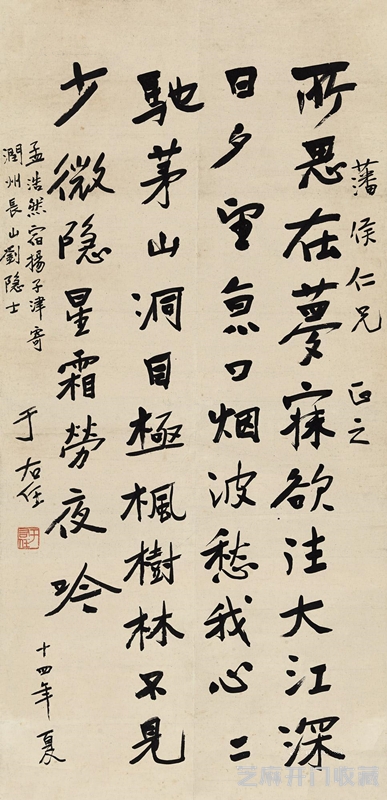 藩侯仁兄 正之
所思在夢寐欲往大江深
日夕望京口烟波愁我心二
馳茅山洞目極楓樹林不見
少微隐星霜勞夜吟
孟浩然宿揚子津寄
潤州長山劉隐士
于右任
十四年夏
芝麻开门收藏